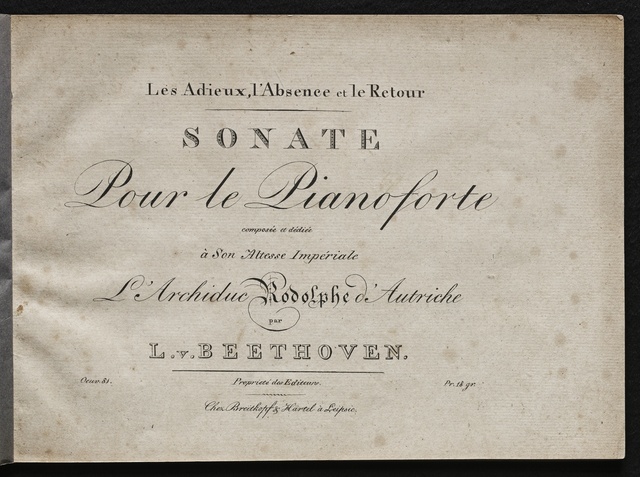 Les Adieux, l'Absence et le Retour
SONATE
Pour le Pianoforte
composée et dédiée
à Son Altesse Impériale
L'Archiduc Rodolphe d'Autriche
par
L. v. BEETHOVEN.
Oeuv. 81. Propriété des Editeurs. Pr. 18 gr.
Chez Breitkopf & Härtel à Leipsic.